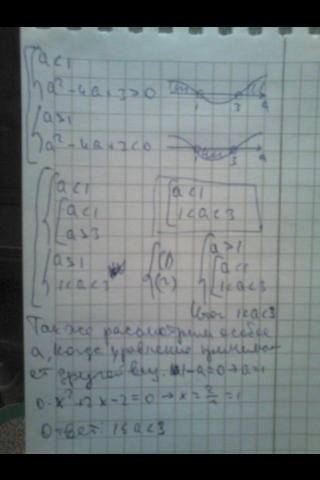 a<1
a²-4a+3>0
1 3 a
a>1
a²-4a+3<0
1 3 a
a<1
a<1
a>3
a>1
1<a<3
a<1
1<a<3
(1)
(2)
a>1
a<1
1<a<3
Итог 1<a<3
Также рассмотрим особое
a, когда уравнение принима-
ет другой вид. 1-a=0→a=1
0·x²+2x-2=0→x=2/2=1
Ответ: 1≤a<3